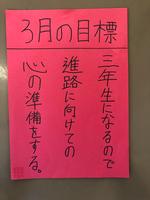 3月の目標
三年生になるので
進路に向けての
心の準備をする。